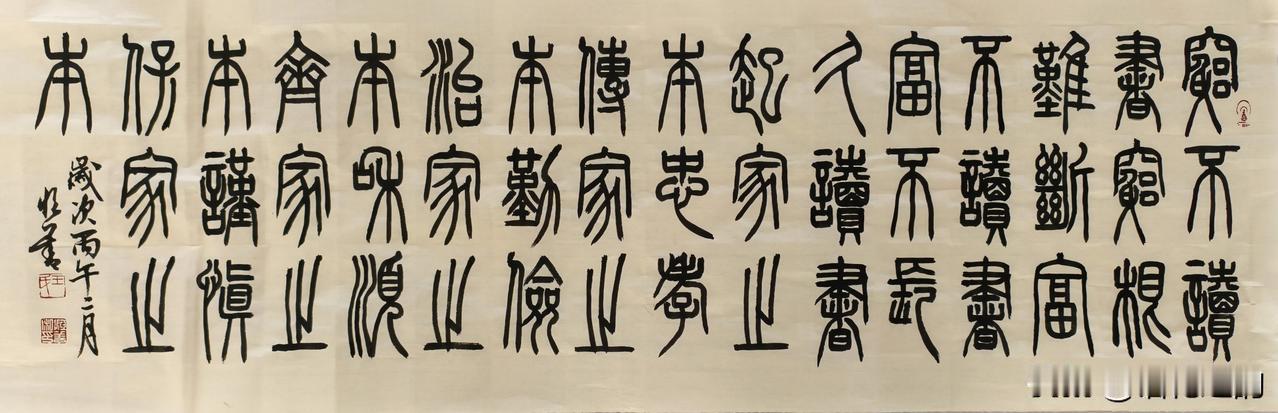 窮不讀
書窮相
難斷富
不讀書
富不長
久讀書
起家之
本忠孝
傳家之
本勤儉
治家之
本和順
齊家之
本謹慎
保家之
本
歲次丙午二月
書